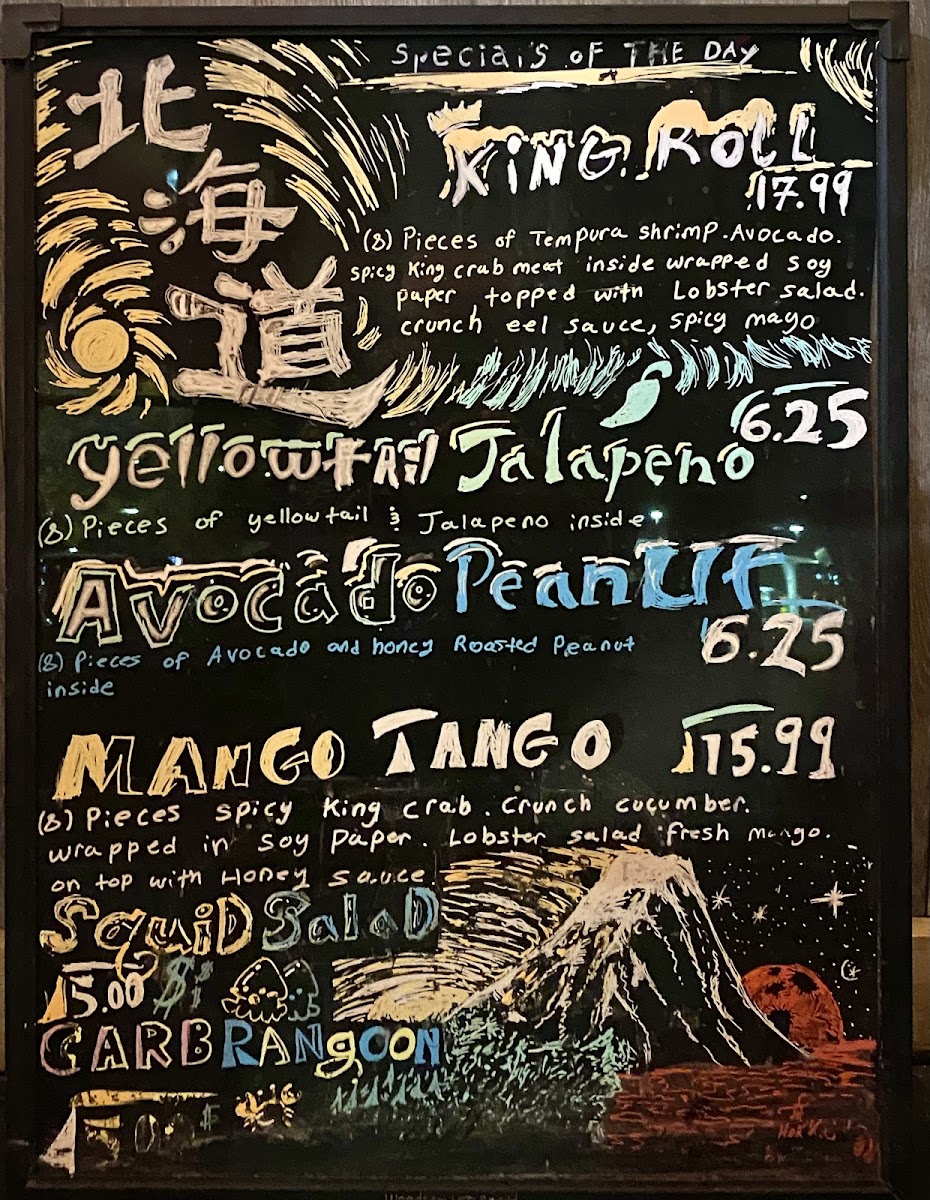 Specials OF THE DAY
北
海
道
KiNG ROLL
17.99
(8) Pieces of Tempura shrimp. Avocado.
spicy King crab meat inside wrapped soy
paper topped with Lobster salad.
crunch eel sauce, spicy mayo
6.25
yellowtail Jalapeno
(8) Pieces of yellowtail & Jalapeno inside
Avocado PeanUt
6.25
(8) Pieces of Avocado and honey Roasted Peanut
inside
MANGO TANGO 15.99
(8) Pieces spicy King crab. Crunch cucumber.
wrapped in soy Paper. Lobster salad fresh mango.
on top with Honey sauce
SquiD SalaD
5.00 $
CARB RANgOON
5.00 $